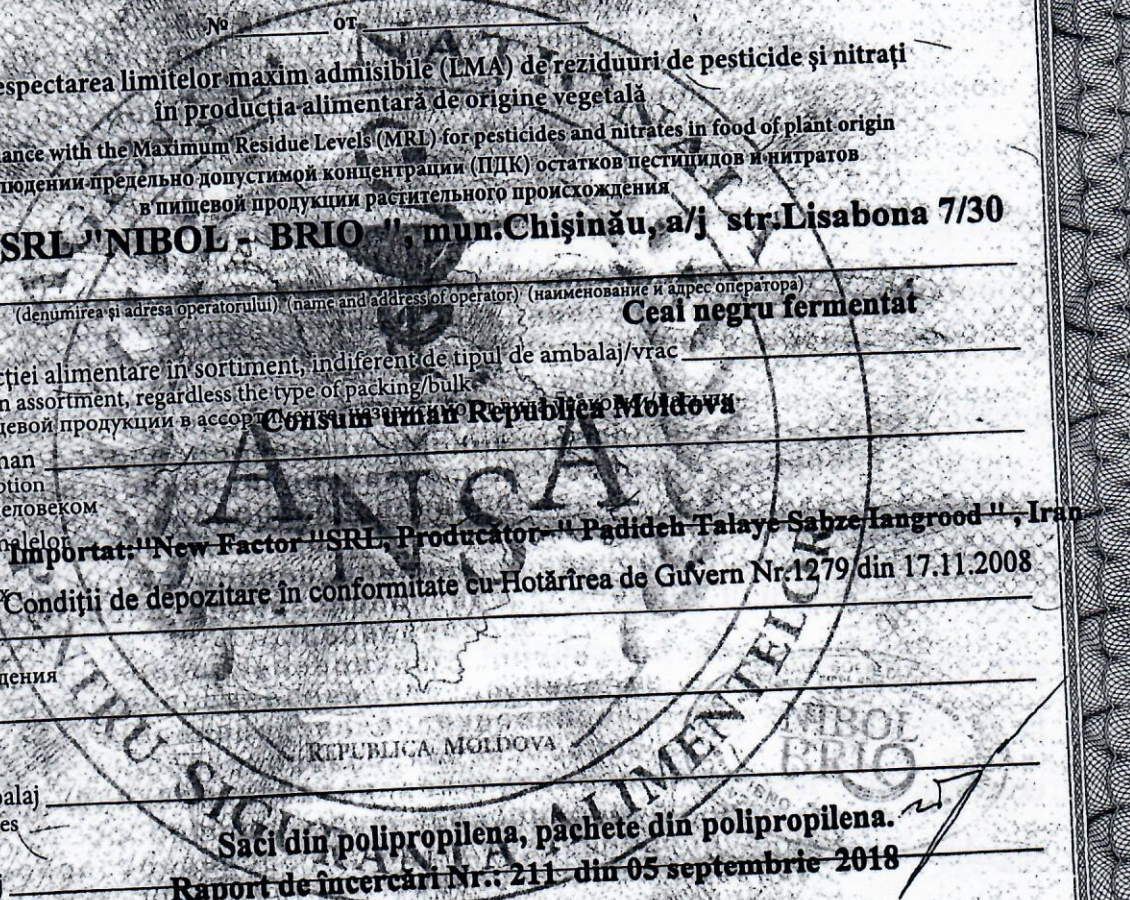 № от
espectarea limitelor maxim admisibile (LMA) de reziduuri de pesticide și nitrați
în producția alimentară de origine vegetală
ance with the Maximum Residue Levels (MRL) for pesticides and nitrates in food of plant origin
людении предельно допустимой концентрации (ПДК) остатков пестицидов и нитратов
в пищевой продукции растительного происхождения
SRL "NIBOL - BRIO ", mun.Chişinău, a/j str.Lisabona 7/30
(denumirea și adresa operatorului) (name and address of operator) (наименование и адрес оператора)
Ceai negru fermentat
ției alimentare în sortiment, indiferent de tipul de ambalaj/vrac
n assortment, regardless the type of packing/bulk
цевой продукции в
Consum uman Republica Moldova
man
ption
еловеком
nalelor
Importat:"New Factor "SRL, Producător- " Padideh Talaye Sabze Iangrood ", Iran
Condiţii de depozitare în conformitate cu Hotărîrea de Guvern Nr.1279 din 17.11.2008
дения
ANSA
REPUBLICA MOLDOVA
NIBOL
BRIO
SIGURANȚA ALIMENTELOR
balaj
es
Saci din polipropilena, pachete din polipropilena.
Raport de încercări Nr.: 211 din 05 septembrie 2018